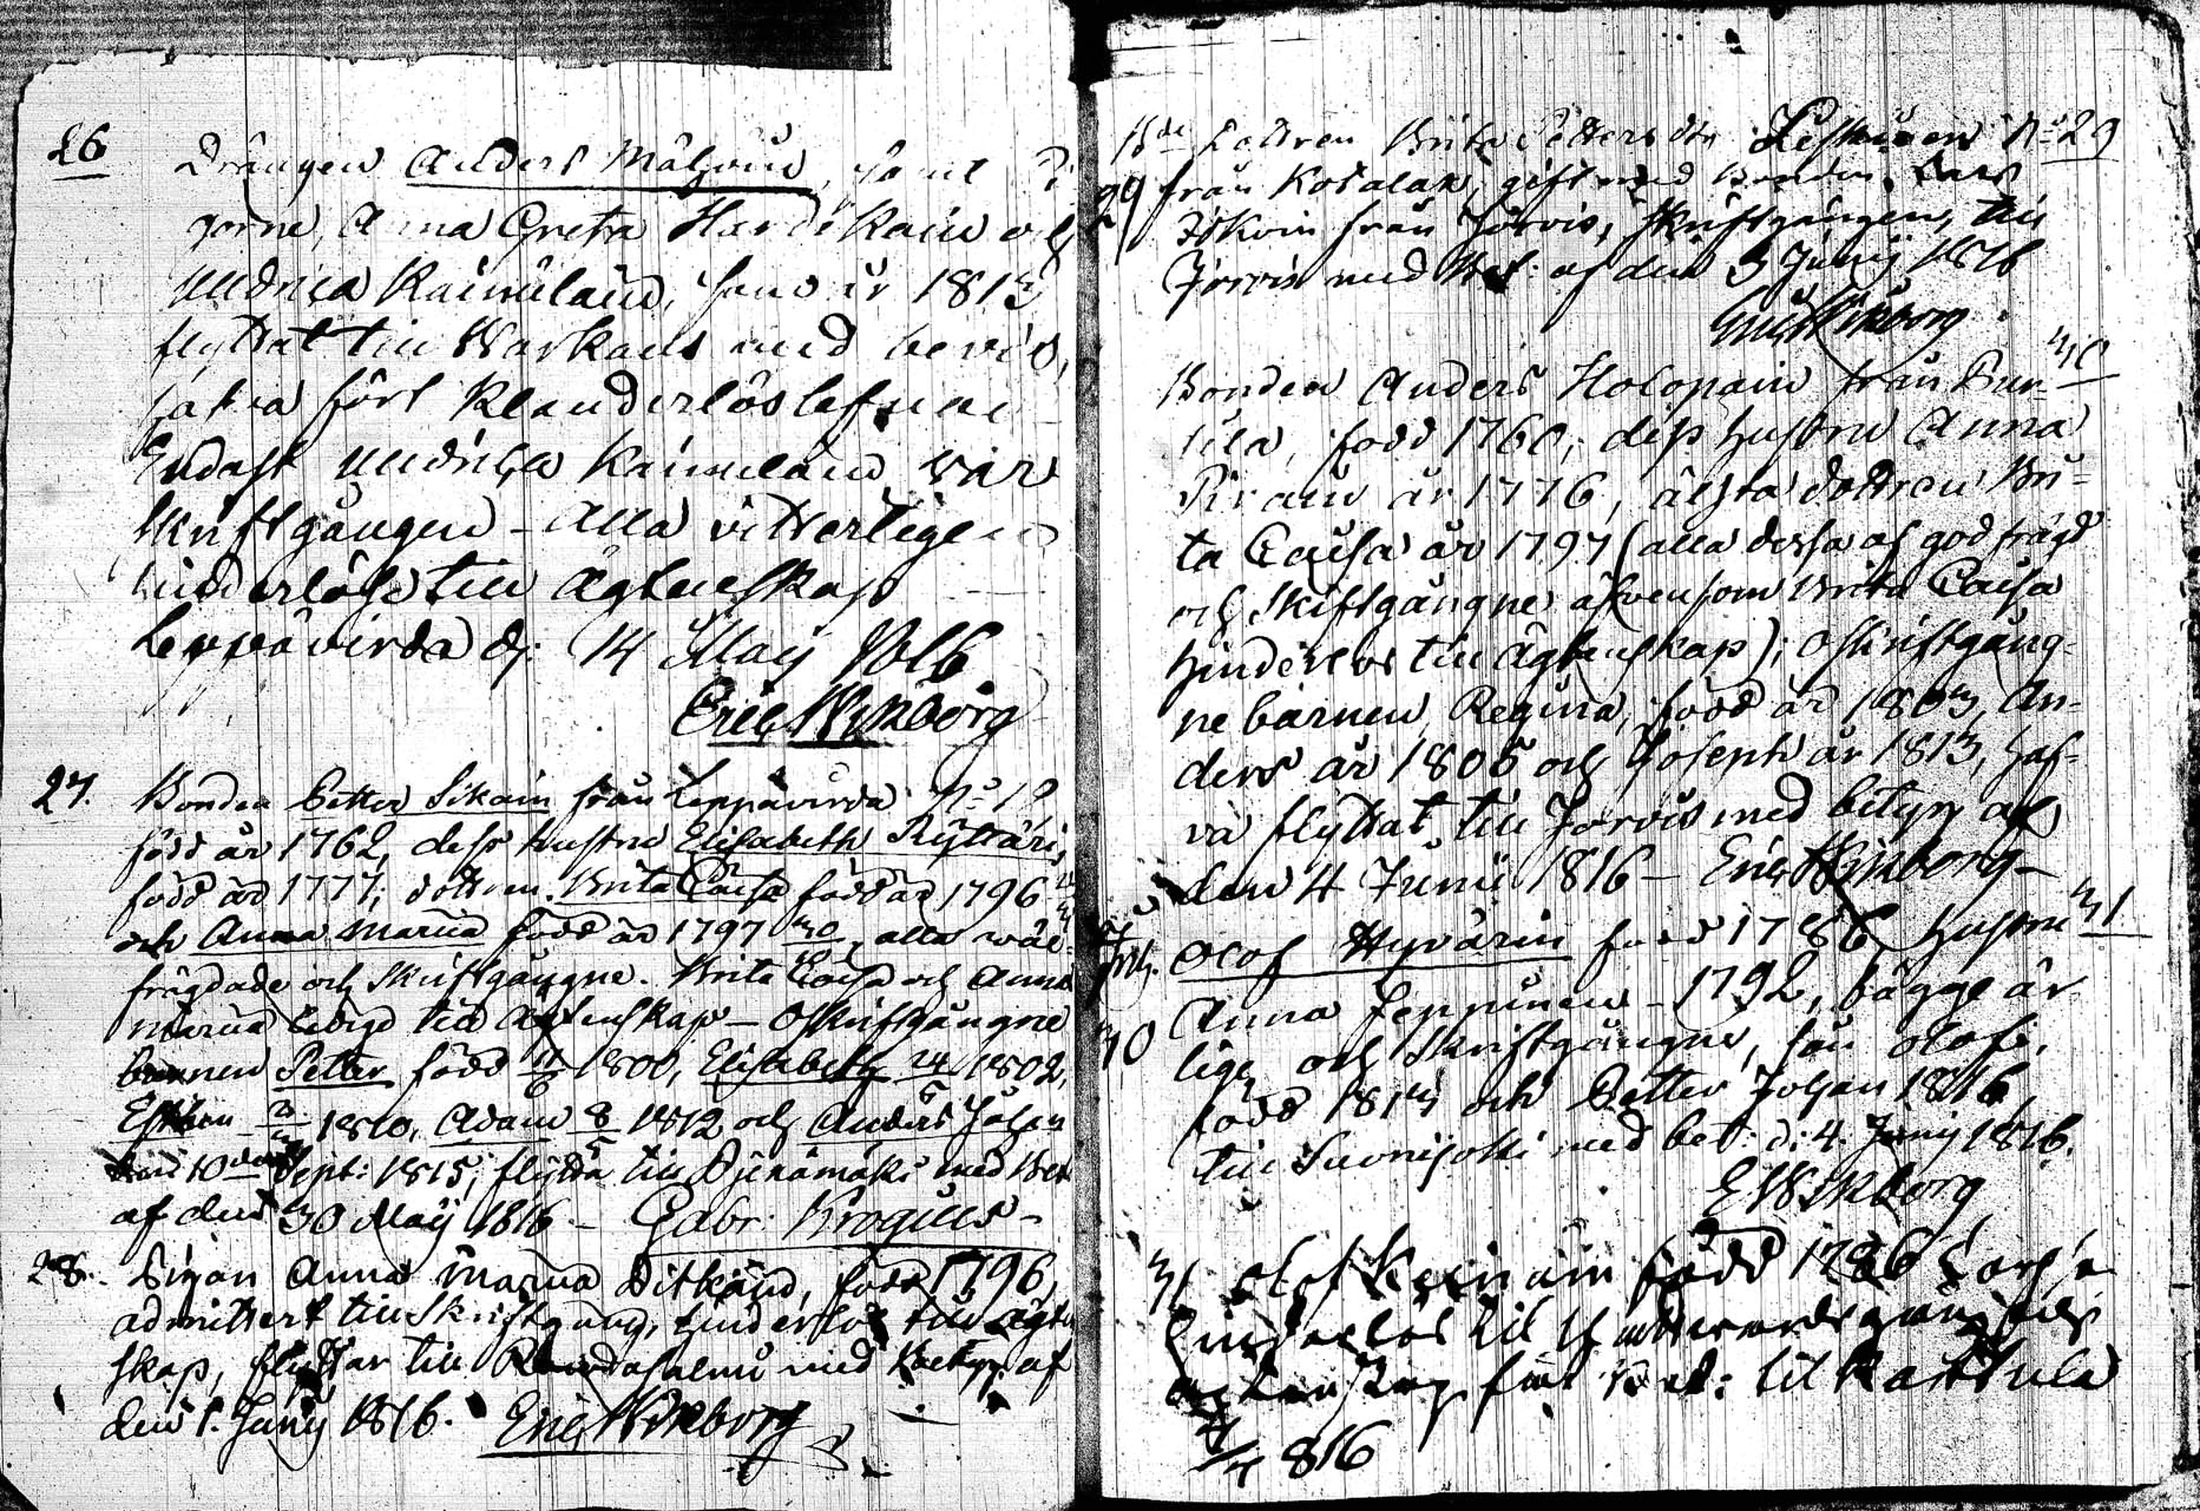 26
Drängen Anders Målzoin, samt Pi
gorne, Anna Greta Hardikain och
Ulldrica Kainulain, som år 1813
flyttat till Warkaus med bevis,
hafwa fört klanderlös lefnad
Endast Ulldrica Kainulain war
skriftgången - Alla vitterligen
hinderlöse till Ägtenskap
Leppävirda d: 14 Maij 1816
Eric Wikborg
27. Bonden Petter Sikain från Leppävirda No 12
född år 1762, dess hustru Elisabeth Ryttäri,
född år 1777; dottren Brita Caisa född år 1796
och Anna Maria född år 1797 30, alla wäl
frägdade och skriftgångne. Brita Caisa och Anna
Maria ledige till Ägtenskap - Oskriftgångne
barnen Petter född 11 1800, Elisabeth 24/5 1802,
1810, Adam 8/5 1812 och Anders Johan
10de Sept: 1815; flytta till Ojenämäki med Bet
af den 30 Maij 1816 - Gabr: Krogius -
28. Pigan Anna Maria Pitkäin, född 1796,
admittert till Skriftgång, hinderlös till Ägten
skap, flyttar till Randasalmi med Betyg af
den 1. Junij 1816. Eric Wikborg
Bde Dottren Brita Petters dtr Leskinen No 29
29 från Kosalax, gift med Bonden Lars
från Jorvis, skriftgången, till
Jorvis med Bet: af den 3 Junij 1816
Eric Wikborg
30
Bonden Anders Holopain från Pur-
tila, född 1760; dess hustru Anna
år 1776, älsta dottren Bri-
ta Caisa år 1797 (alla dessa af god frägd
och Skriftgångne äfvensom Brita Caisa
hinderlös till Ägtenskap); oskriftgång-
ne barnen, Regina, född år 1803, An-
ders år 1806 och Joseph år 1813, haf-
va flyttat till Jorvis med betyg af
den 4 Junii 1816 - Eric Wikborg -
Olof Hyvärin född 1786, hustru 31
Anna Leppinen - 1792, bägge är
30 lige och Skriftgångne, son Olof,
född 1813 och Petter Johan 1816,
till Suonijoki med bet: d: 4 Junij 1816.
E Wikborg
31 Olof Keinäin född 1786
hinderlös til Nattvardsgång och
ägtenskap fått Bet: til Karttula
1816